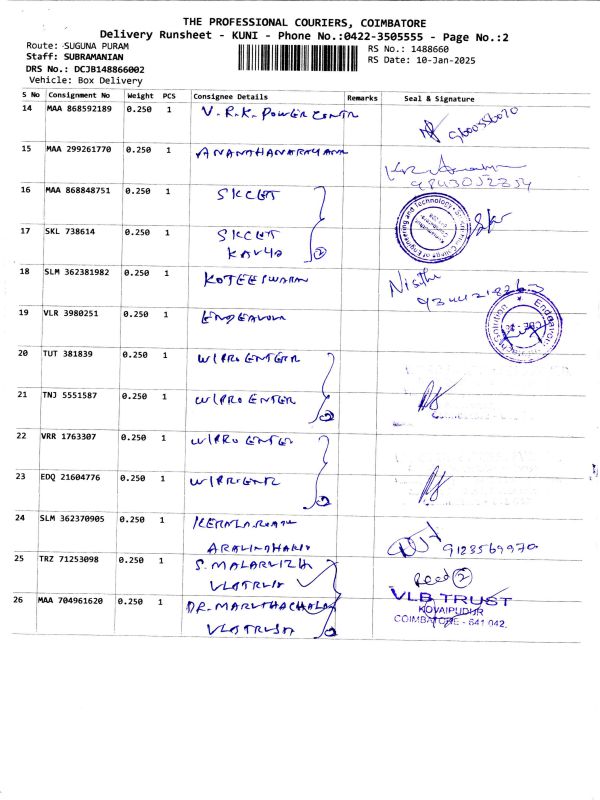 THE PROFESSIONAL COURIERS, COIMBATORE
Delivery Runsheet - KUNI - Phone No.:0422-3505555 - Page No.:2
Route: SUGUNA PURAM
RS No.: 1488660
Staff: SUBRAMANIAN
RS Date: 10-Jan-2025
DRS No.: DCJB148866002
Vehicle: Box Delivery
S No Consignment No Weight PCS Consignee Details Remarks Seal & Signature
14 MAA 868592189 0.250 1 V.R.K. POWER
15 MAA 299261770 0.250 1 ANANTHANARAYANA
16 MAA 868848751 0.250 1 SKCET
17 SKL 738614 0.250 1 SKCET
KAVYA 2
18 SLM 362381982 0.250 1 KOTEESWARAN
Nisthi
19 VLR 3980251 0.250 1 ENDEAVOUR
20 TUT 381839 0.250 1 WIPRO ENTERR
21 TNJ 5551587 0.250 1 WIPRO ENTER
2
22 VRR 1763307 0.250 1 WIPRO ENTER
23 EDQ 21604776 0.250 1 WIPRO
2
24 SLM 362370905 0.250 1
9128569970
25 TRZ 71253098 0.250 1 S. MALARVIZH
VLBTRUST
Recd 2
26 MAA 704961620 0.250 1 DR. MARUTHACHALAM
VLBTRUST 2
VLB TRUST
KOVAIPUDUR
COIMBATORE - 641 042.